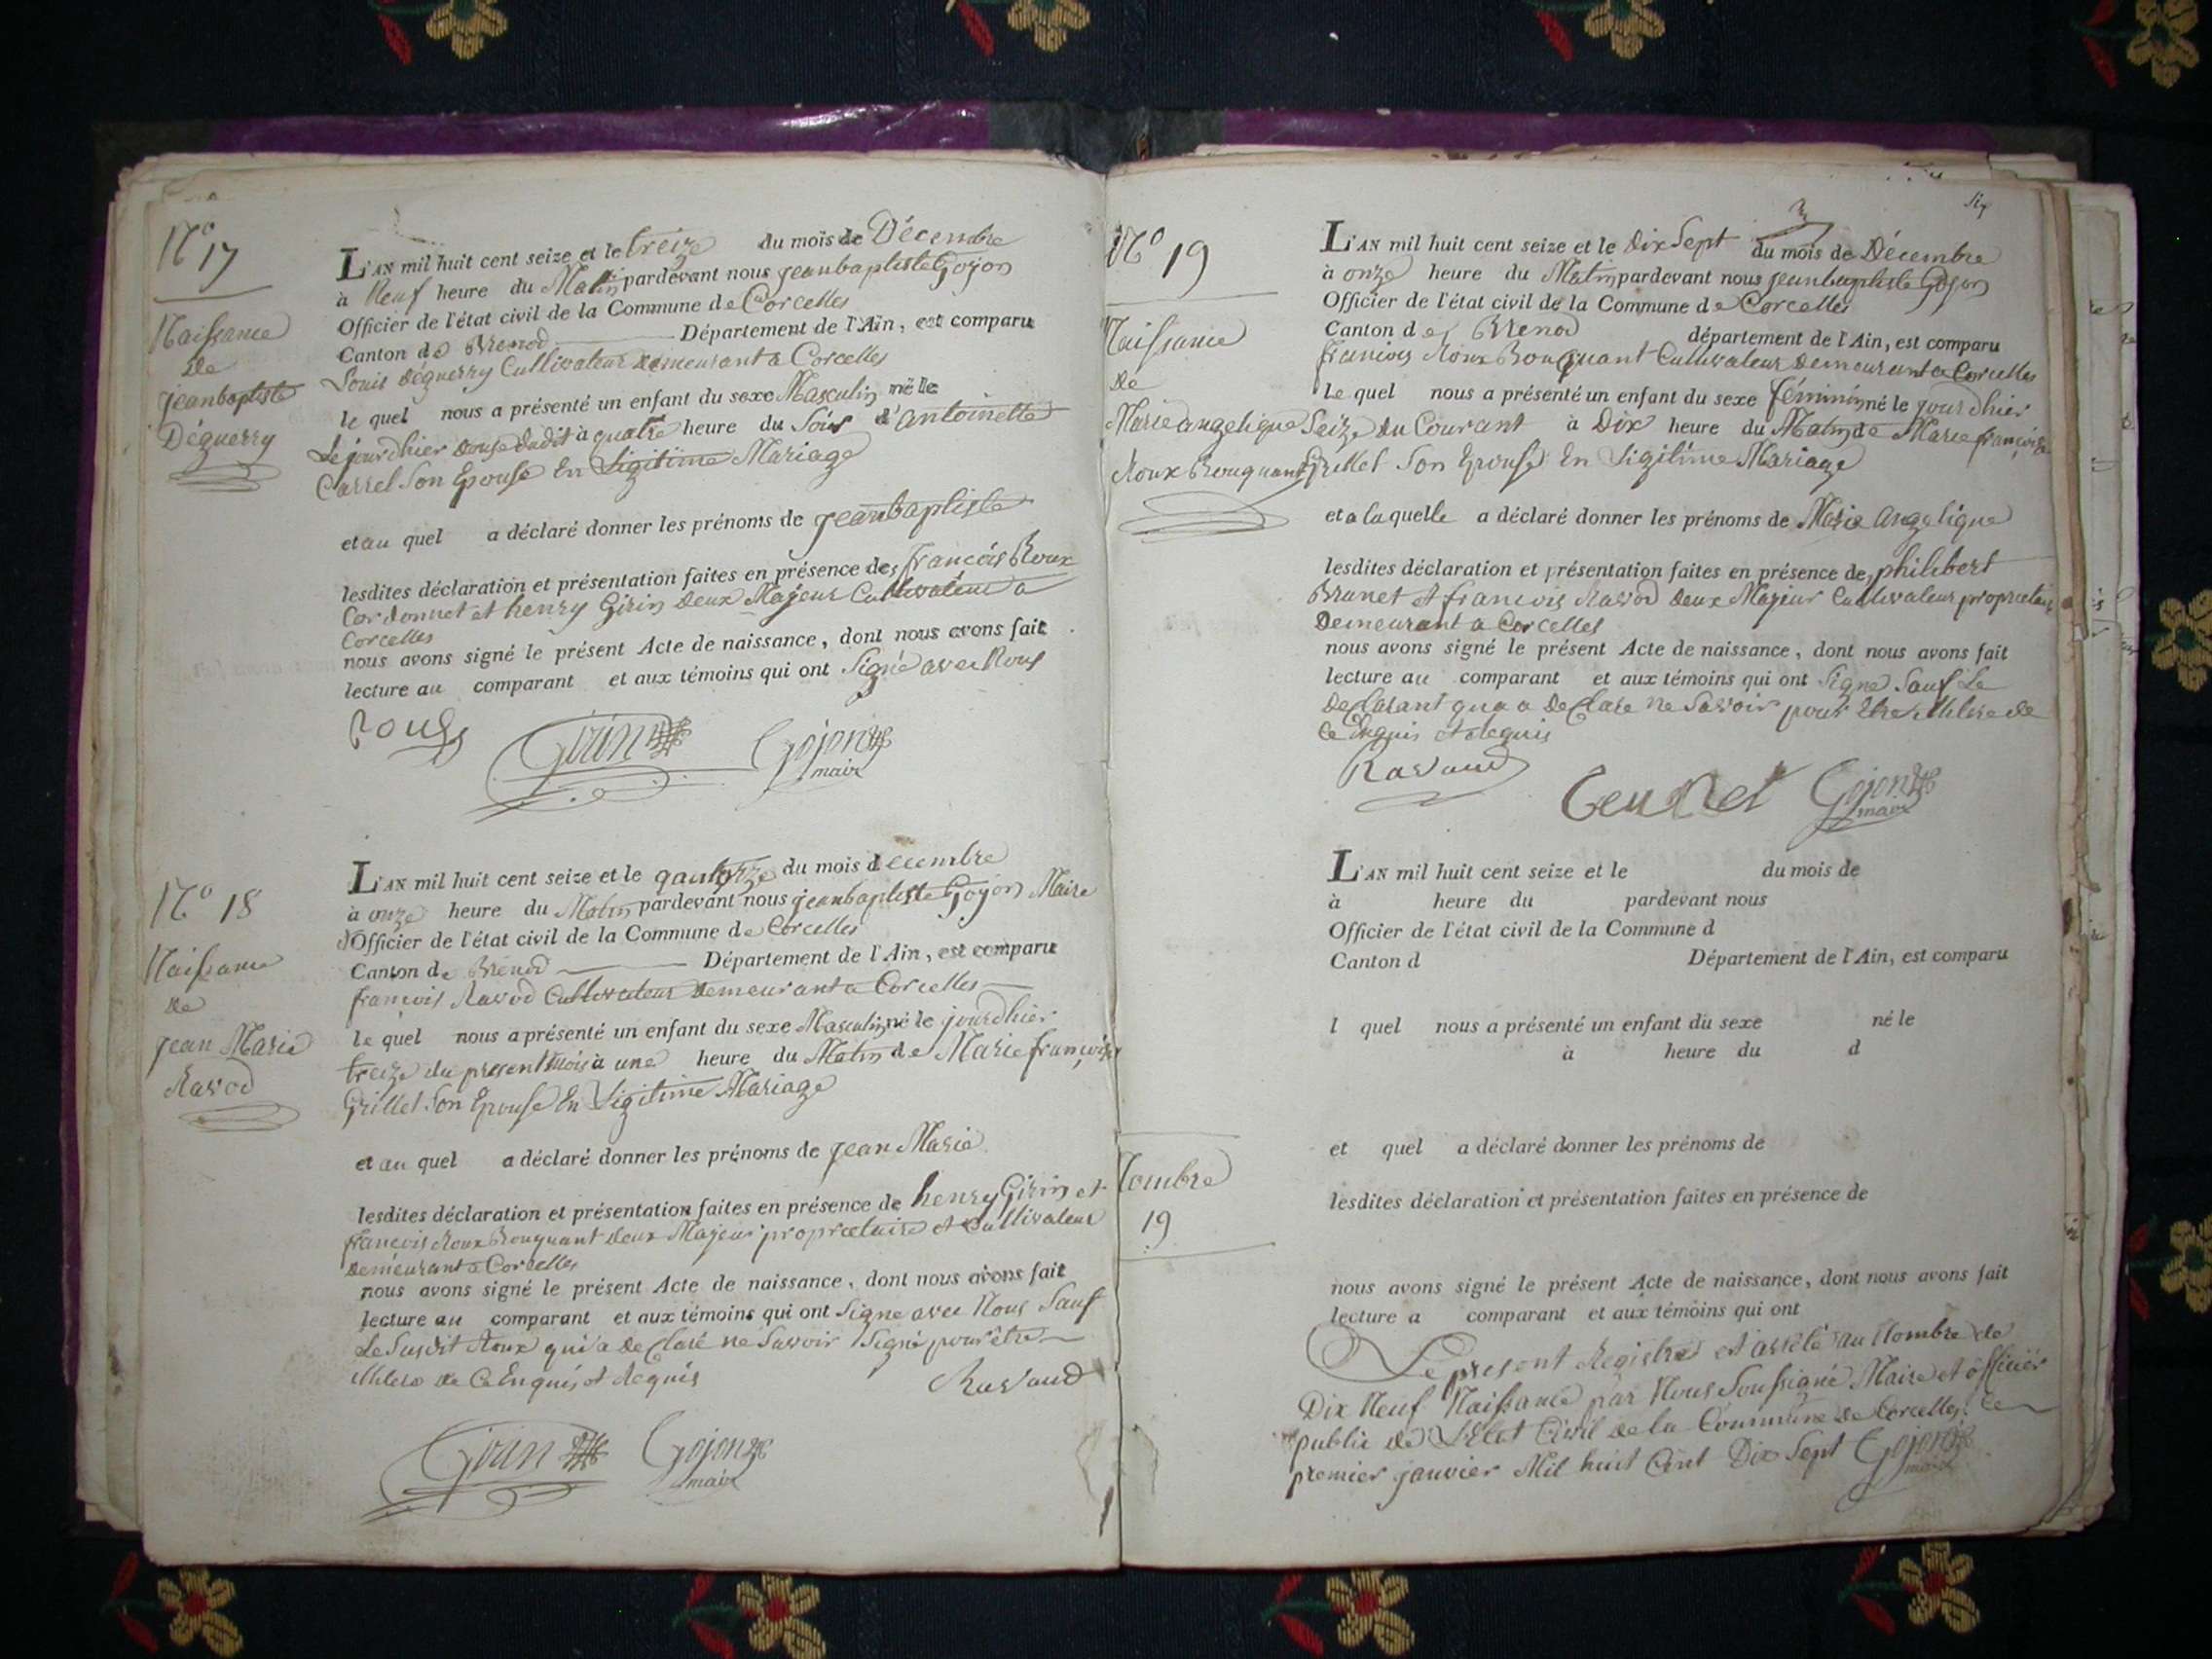 N.o 17
Naissance
de
jeanbaptiste
Déguerry
L'AN mil huit cent seize et le treize du mois de Décembre
à Neuf heure du Matin pardevant nous jeanbaptiste Gojon
Officier de l'état civil de la Commune de Corcelles
Canton de Brenod Département de l'Ain, est comparu
Louis Déguerry Cultivateur demeurant a Corcelles
le quel nous a présenté un enfant du sexe Masculin né le
Le jourdhier douze dudit à quatre heure du Soir d'antoinette
Carrel Son Epouse En Ligitime Mariage
et au quel a déclaré donner les prénoms de jeanbaptiste
lesdites déclaration et présentation faites en présence des francois Roux
Cordonnet et henry Girin deux Majeur Cultivateur a
Corcelles
nous avons signé le présent Acte de naissance, dont nous avons fait
lecture au comparant et aux témoins qui ont Signé avec Nous
Girin Gojon
maire
N.o 18
Naissance
de
jean Marie
Ravod
L'AN mil huit cent seize et le quatorze du mois decembre
à onze heure du Matin pardevant nous jeanbaptiste Gojon Maire
Officier de l'état civil de la Commune de Corcelles
Canton de Brénod Département de l'Ain, est comparu
francois Ravod Cultivateur demeurant a Corcelles
le quel nous a présenté un enfant du sexe Masculin né le jourdhier
treize du present mois à une heure du Matin de Marie françoise
Grillet Son Epouse En Ligitime Mariage
et au quel a déclaré donner les prénoms de jean Marie
lesdites déclaration et présentation faites en présence de henry Girin et
francois Roux Bouquant deux Majeur propraetaire et Cultivateur
demeurant a Corcelles
nous avons signé le présent Acte de naissance, dont nous avons fait
lecture au comparant et aux témoins qui ont Signe avec Nous Sauf
Le Susdit Roux qui a declaré ne Savoir Signé pour être
illitere de Ce Enquis et Requis
Ravaud
Girin Gojon
maire
six
N.o 19
Naissance
de
Marie angelique
Roux Bouquant
L'AN mil huit cent seize et le dix Sept du mois de Décembre
à onze heure du Matin pardevant nous jeanbaptiste Gojon
Officier de l'état civil de la Commune de Corcelles
Canton de Brenod département de l'Ain, est comparu
francois Roux Bouquant Cultivateur demeurant a Corcelles
le quel nous a présenté un enfant du sexe féminin né le jourdhier
Seize du Courant à Dix heure du Matin de Marie françoise
Grillet Son Epouse En Ligitime Mariage
et a la quelle a déclaré donner les prénoms de Marie angelique
lesdites déclaration et présentation faites en présence de philibert
Brunet et francois Ravod deux Majeur Cultivateur propraetaire
demeurant a Corcelles
nous avons signé le présent Acte de naissance, dont nous avons fait
lecture au comparant et aux témoins qui ont Signe Sauf Le
declarant qua a declare ne Savoir pour Etre illitre de
Ce Enquis et requis
Ravaud
Gojon
maire
L'AN mil huit cent seize et le du mois de
à heure du pardevant nous
Officier de l'état civil de la Commune d
Canton d Département de l'Ain, est comparu
l quel nous a présenté un enfant du sexe né le
à heure du d
et quel a déclaré donner les prénoms de
lesdites déclaration et présentation faites en présence de
nous avons signé le présent Acte de naissance, dont nous avons fait
lecture a comparant et aux témoins qui ont
Nombre
19
Le present Registre est arrêté au Nombre de
Dix Neuf Naissance par Nous Soussigné Maire et officier
public de L'Etat Civil de la Commune de Corcelles. Ce
premier janvier Mil huit Cent Dix Sept Gojon
maire